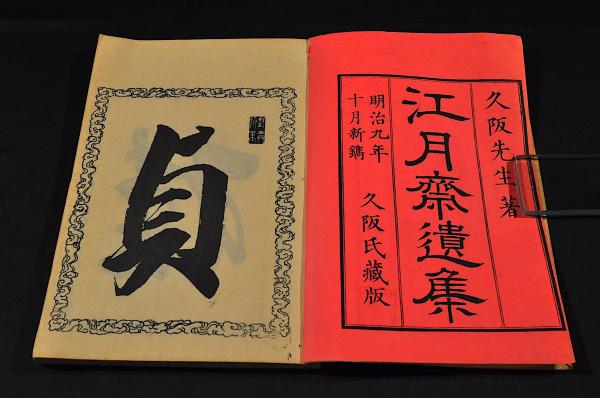 久阪先生著
江月齋遺集
明治九年
十月新鐫
久阪氏藏版
貞